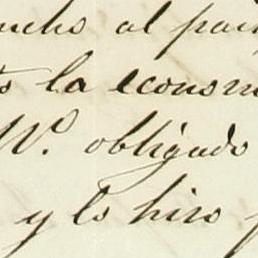 mucho al pais
la econom
W.º obligado
y lo hiso